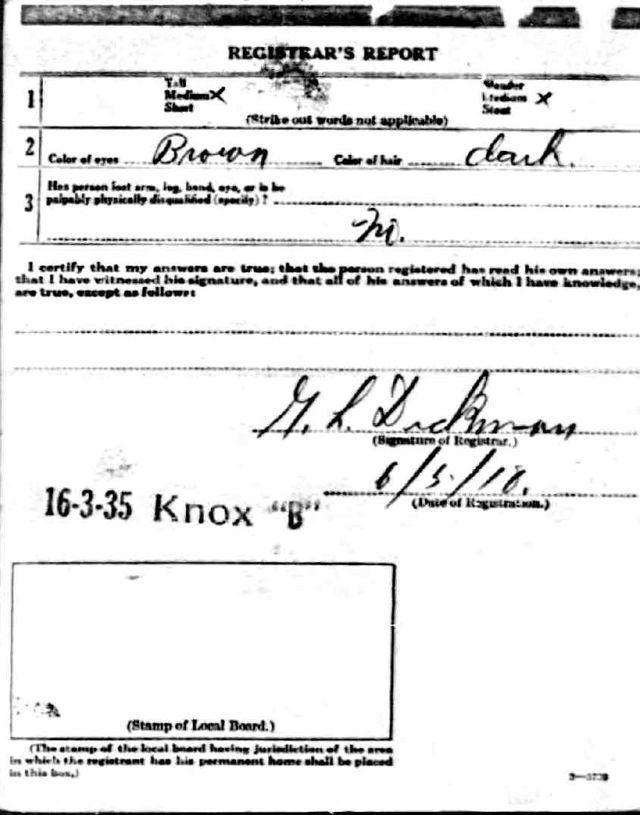 REGISTRAR'S REPORT
1 Tall Slender
Medium X Medium X
Short Stout
(Strike out words not applicable)
2 Color of eyes Brown Color of hair dark.
3 Has person lost arm, leg, hand, eye, or is he
palpably physically disqualified (specify)?
I certify that my answers are true; that the person registered has read his own answers;
that I have witnessed his signature, and that all of his answers of which I have knowledge,
are true, except as follows:
L. Dickman
(Signature of Registrar.)
6/5/18.
(Date of Registration.)
16-3-35 Knox "B"
(Stamp of Local Board.)
(The stamp of the local board having jurisdiction of the area
in which the registrant has his permanent home shall be placed
in this box.)